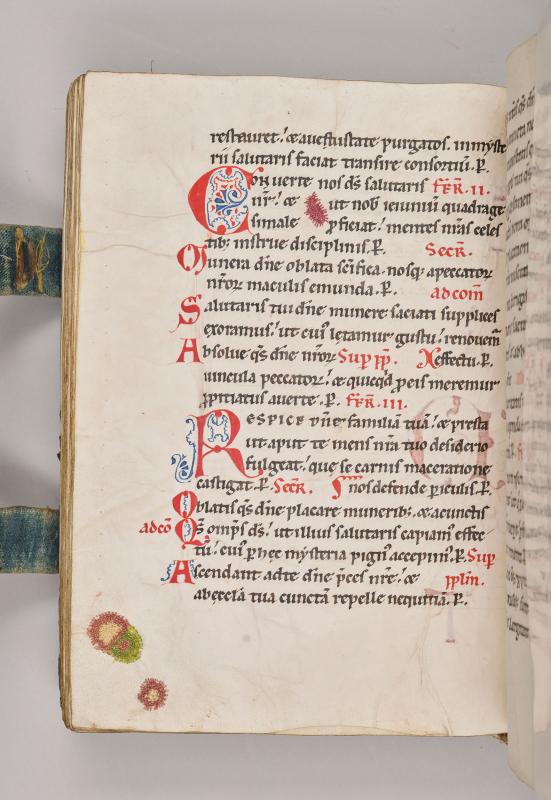 restauret. ⁊ a uetustate purgatos. in myste
rii salutaris faciat transire consortiū. P.
Conuerte nos d̄s salutaris FER̄. II.
nr̄. ⁊ ut nob̄ ieiuniū quadrage
simale ꝓficiat. mentes nr̄as celes
tib; instrue disciplinis. P. Secr̄.
Munera dn̄e oblata sc̄ifica. nosq; a peccator
nr̄or maculis emunda. P. ad com̄
Salutaris tui dn̄e munere saciati supplices
exoramus. ut cui' letamur gustu. renouem̄
effectu. P.
Absolue q̄s dn̄e nr̄or Sup pp̄.
uincula peccator. ⁊ quicqd ꝓ eis meremur
ꝓpitiatus auerte. P. FER̄. III.
RESPICE dn̄e familiā tuā. ⁊ presta
ut aput te mens nr̄a tuo desiderio
fulgeat. que se carnis maceratione
castigat. P. Secr̄. nos defende ꝑiculis. P.
Oblatis q̄s dn̄e placare muneribꝫ. ⁊ a cunctis
ad cō Q̄s omp̄s d̄s. ut illius salutaris capiam' effec
tū. cui' ꝑ hec mysteria pign' accepim'. P. Sup
Ascendant ad te dn̄e p̄ces nr̄e. ⁊ pplm̄.
ab eccl̄a tua cunctā repelle nequitiā. P.